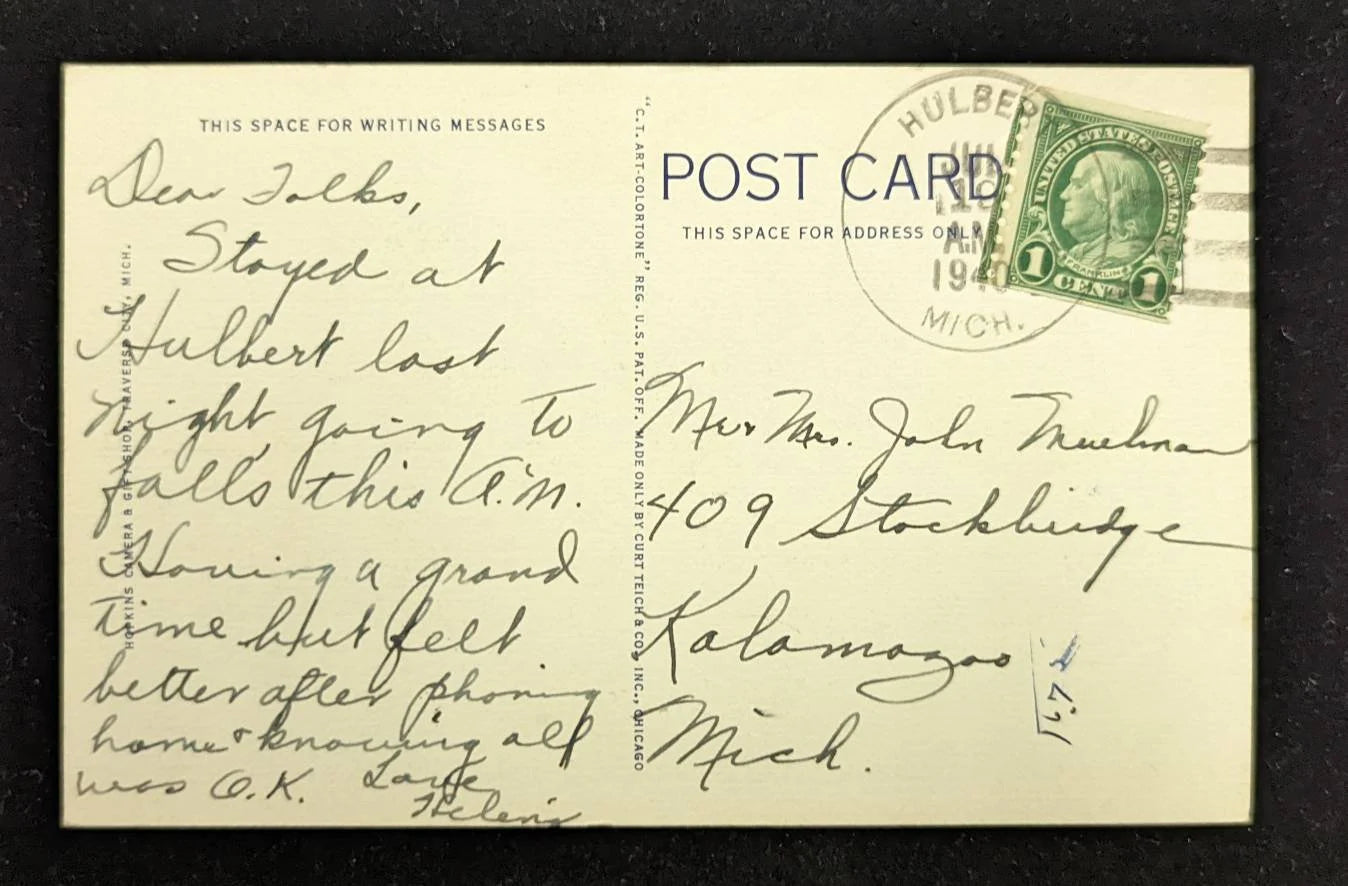 THIS SPACE FOR WRITING MESSAGES
Dear Folks,
Stayed at
Hulbert last
night, going to
falls this A.M.
Having a grand
time but felt
better after phoning
home & knowing all
was O.K. Love
HOPKINS CAMERA & GIFT SHOP, TRAVERSE CITY, MICH.
"C.T. ART-COLORTONE" REG. U.S. PAT. OFF. MADE ONLY BY CURT TEICH & CO., INC., CHICAGO
POST CARD
THIS SPACE FOR ADDRESS ONLY
HULBER
JUL
19
A.M.
1940
MICH.
UNITED STATES POSTAGE
FRANKLIN
1 CENT 1
Mr & Mrs. John
409 Stockbridge
Kalamazoo
Mich.